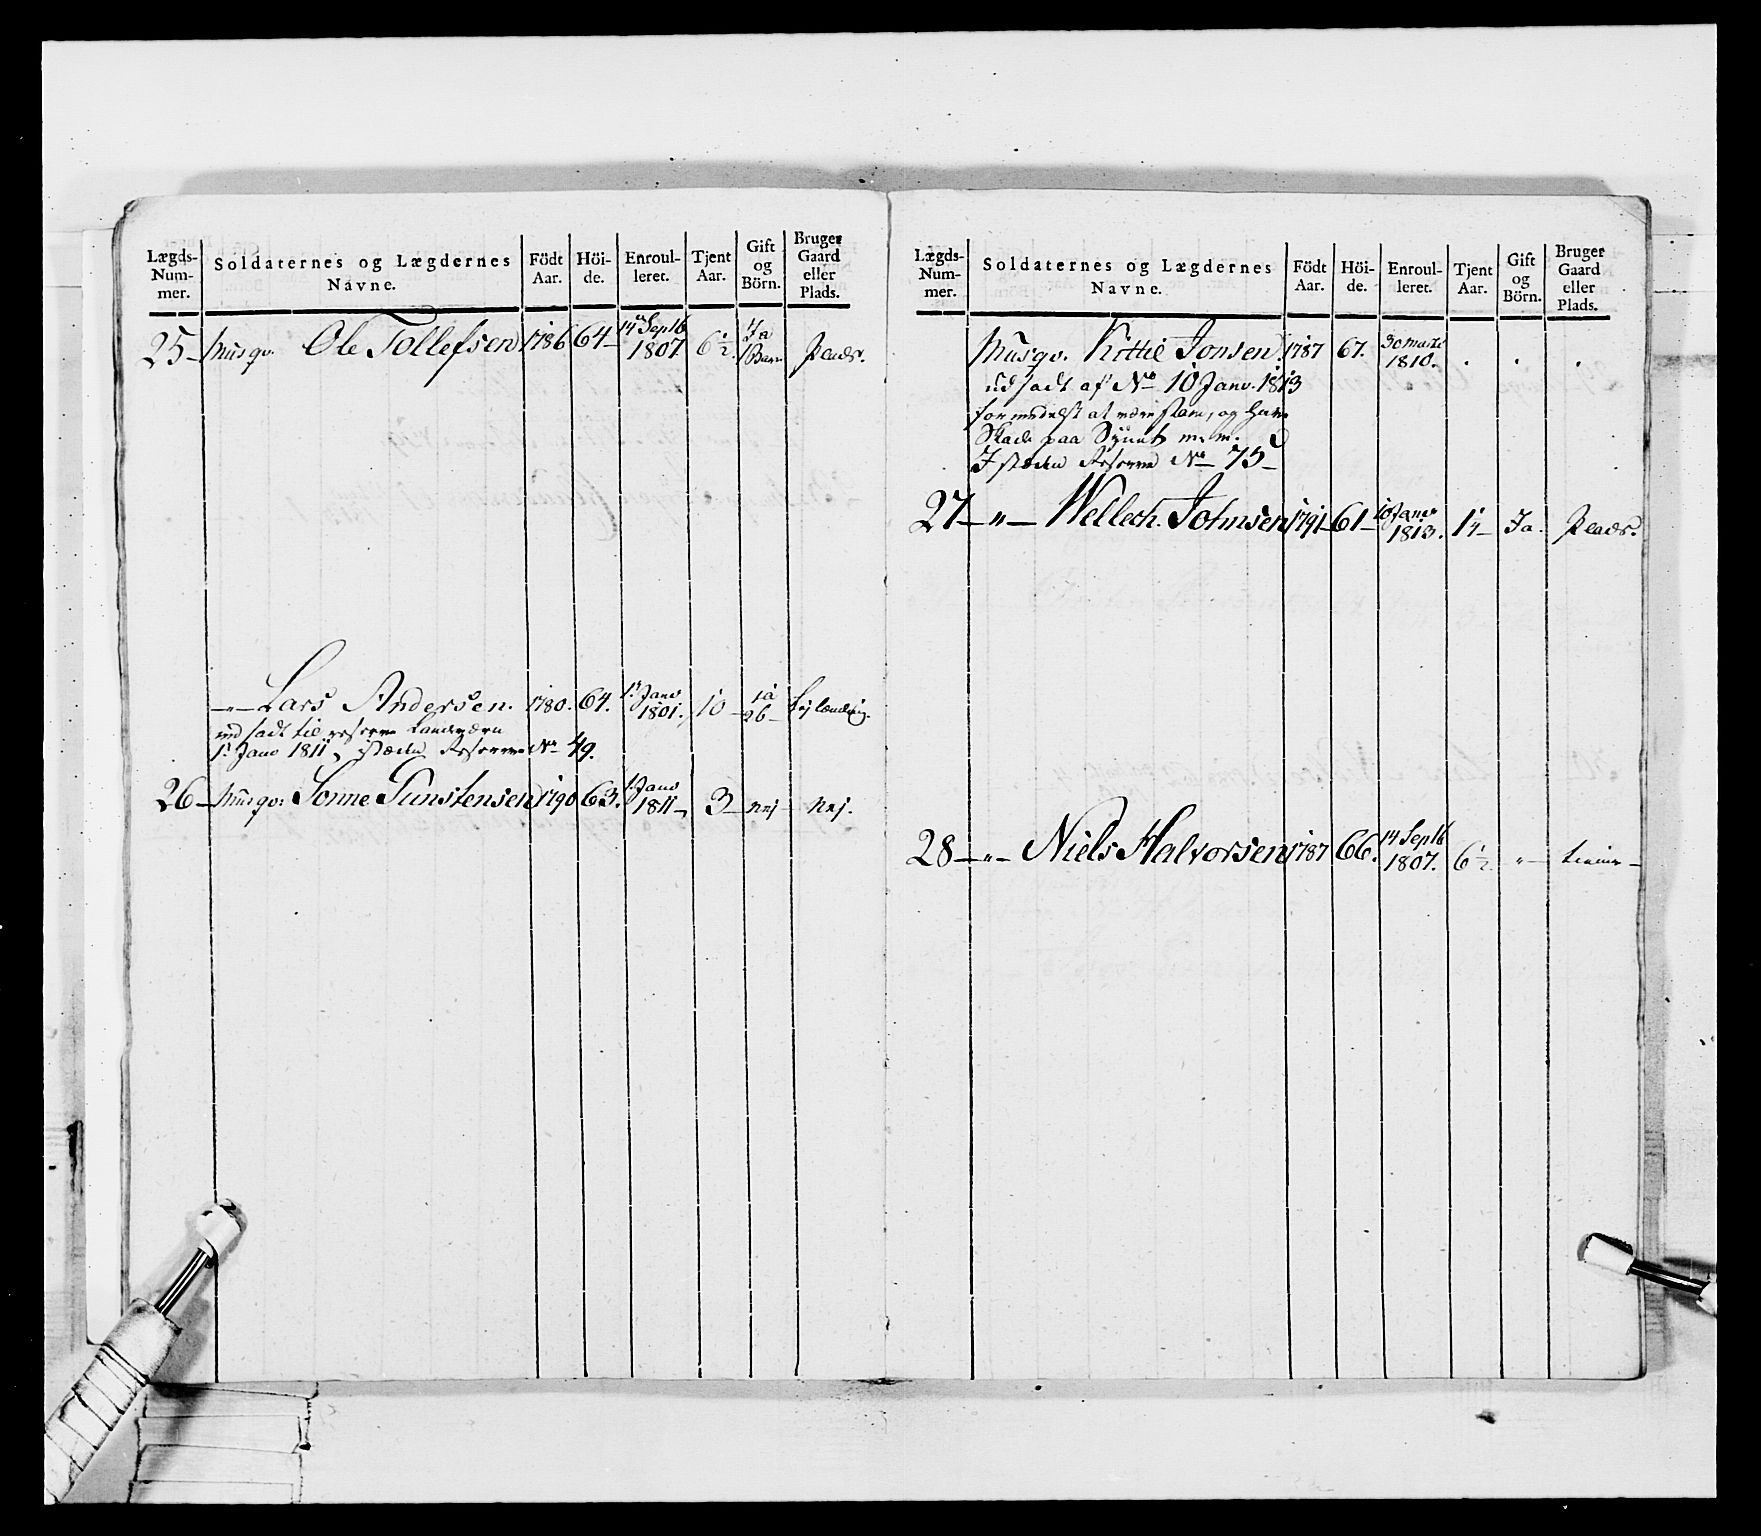 Lægds-Num-mer. Soldaternes og Lægdernes Navne. Födt Aar. Höi-de. Enroul-leret. Tjent Aar. Gift og Börn. Bruger Gaard eller Plads.
25 – Musqv. Ole Tollefsen 1786 64 – 14 Septb 1807 6½ Ja 1 Barn Plads.
– " – Lars Andersen. 1780. 64. 1. Janv 1801. 10 – ja 2 b –
udsadt til reserve Landværn
1. Janv 1811, istæden Reserve No 49.
26 – Musqv: Sonne Gunstensen 1790 63. 1. Janv 1811 – 3 – Nej – Nej.
Lægds-Num-mer. Soldaternes og Lægdernes Navne. Födt Aar. Höi-de. Enroul-leret. Tjent Aar. Gift og Börn. Bruger Gaard eller Plads.
Musqv. Kittil Jonsen. 1787 67. 30 Marts 1810. . . .
udsadt af No 10 Janv. 1813
formedelst at være stam, og have
Skade paa Synet m. m.
I stæden Reserve No 75 –
27 – " – Wellech. Johnsen 1791 – 61 – 10 Janv 1813. 1¼ – Ja. Plads.
28 – " – Niels Halvorsen 1787 66. 14 Septb 1807. 6½ " –